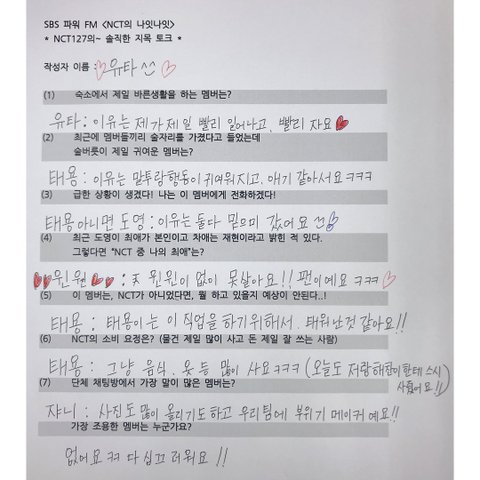 SBS 파워 FM <NCT의 나잇나잇>
* NCT127의~ 솔직한 지목 토크~ *
작성자 이름 : ♡유타^^ ♡
(1) 숙소에서 제일 바른생활을 하는 멤버는?
유타 : 이유는 제가 제일 빨리 일어나고, 빨리 자요♥
(2) 최근에 멤버들끼리 술자리를 가졌다고 들었는데
술버릇이 제일 귀여운 멤버는?
태용 : 이유는 말투랑 행동이 귀여워지고. 애기 같아서요ㅋㅋㅋ
(3) 급한 상황이 생겼다! 나는 이 멤버에게 전화하겠다!
태용아니면 도영 : 이유는 둘다 믿으미 갔어요
(4) 최근 도영이 최애가 본인이고 차애는 재현이라고 밝힌 적 있다.
그렇다면 "NCT 중 나의 최애"는?
♥♥윈윈♥♥ : 윈윈이 없이 못살아요!! 팬이예요 ㅋㅋㅋ♡
(5) 이 멤버는, NCT가 아니었다면, 뭘 하고 있을지 예상이 안된다..!
태용 : 태용이는 이 직업을 하기위해서. 태워난것 같아요!!
(6) NCT의 소비 요정은? (물건 제일 많이 사고 돈 제일 잘 쓰는 사람)
태용 : 그냥 음식. 옷 등 많이 사요ㅋㅋㅋ (오늘도 저랑 해찬이한테 스시
사줬어요!!)
(7) 단체 채팅방에서 가장 말이 많은 멤버는?
쟈니 : 사진도 많이 올리기도 하고 우리팀에 부위기 메이커 예요!!
가장 조용한 멤버는 누군가요?
없어요 ㅋㅋ 다 심끄러워요!!